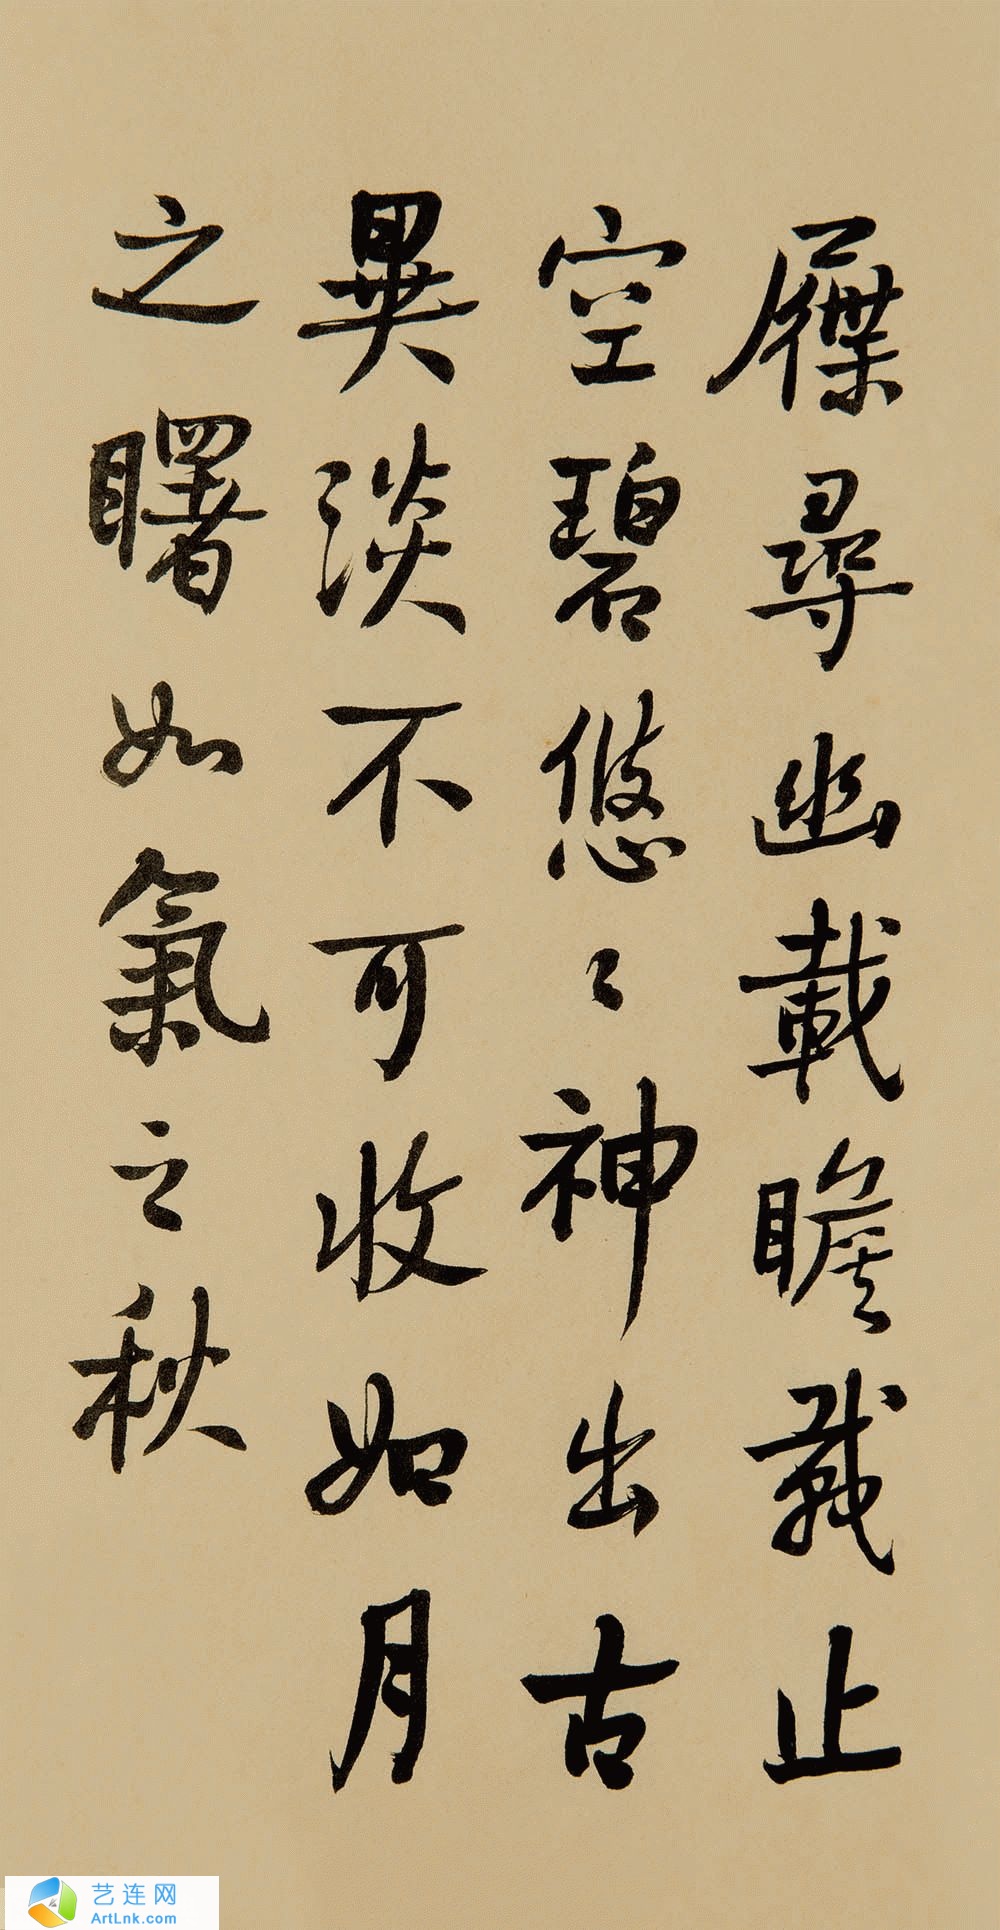 屧尋幽載瞻載止
空碧悠〻神出古
異淡不可收如月
之曙如氣之秋
艺连网
ArtLnk.com